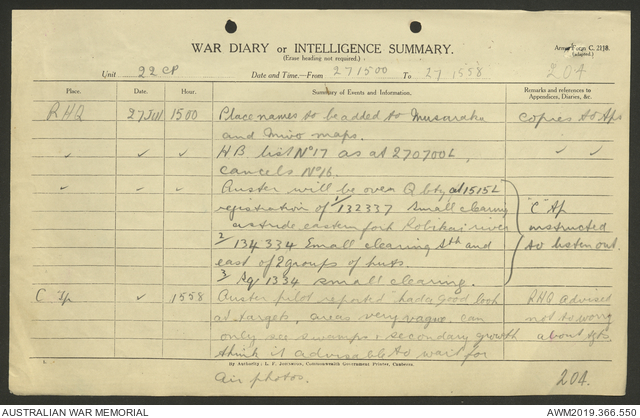 WAR DIARY or INTELLIGENCE SUMMARY.
(Erase heading not required.)
Army Form C. 2118.
(adapted.)
Unit 22 CP Date and Time—From 271500 To 27 1558 204
Place. Date. Hour. Summary of Events and Information. Remarks and references to Appendices, Diaries, &c.
RHQ 27 Jul 1500 Place names to be added to Musaraka copies to Tps
and Mivo maps.
✓ ✓ ✓ HB list No 17 as at 270700L, ✓ ✓
cancels No 16.
✓ ✓ Auster will be over Q bty at 1515L
registration of 1/ 132337 Small clearing "C" Tp
astride eastern fork Robikai river instructed
2/ 134334 Small clearing Sth and to listen out.
east of 2 groups of huts
3/ 1334 small clearing.
C Tp ✓ 1558 Auster pilot reported "had a good look RHQ advised
at targets, areas very vague, can not to worry
only see swamps & secondary growth about tgts
think it advisable to wait for
By Authority: L. F. Johnston, Commonwealth Government Printer, Canberra.
air photos. 204.
AUSTRALIAN WAR MEMORIAL AWM2019.366.550